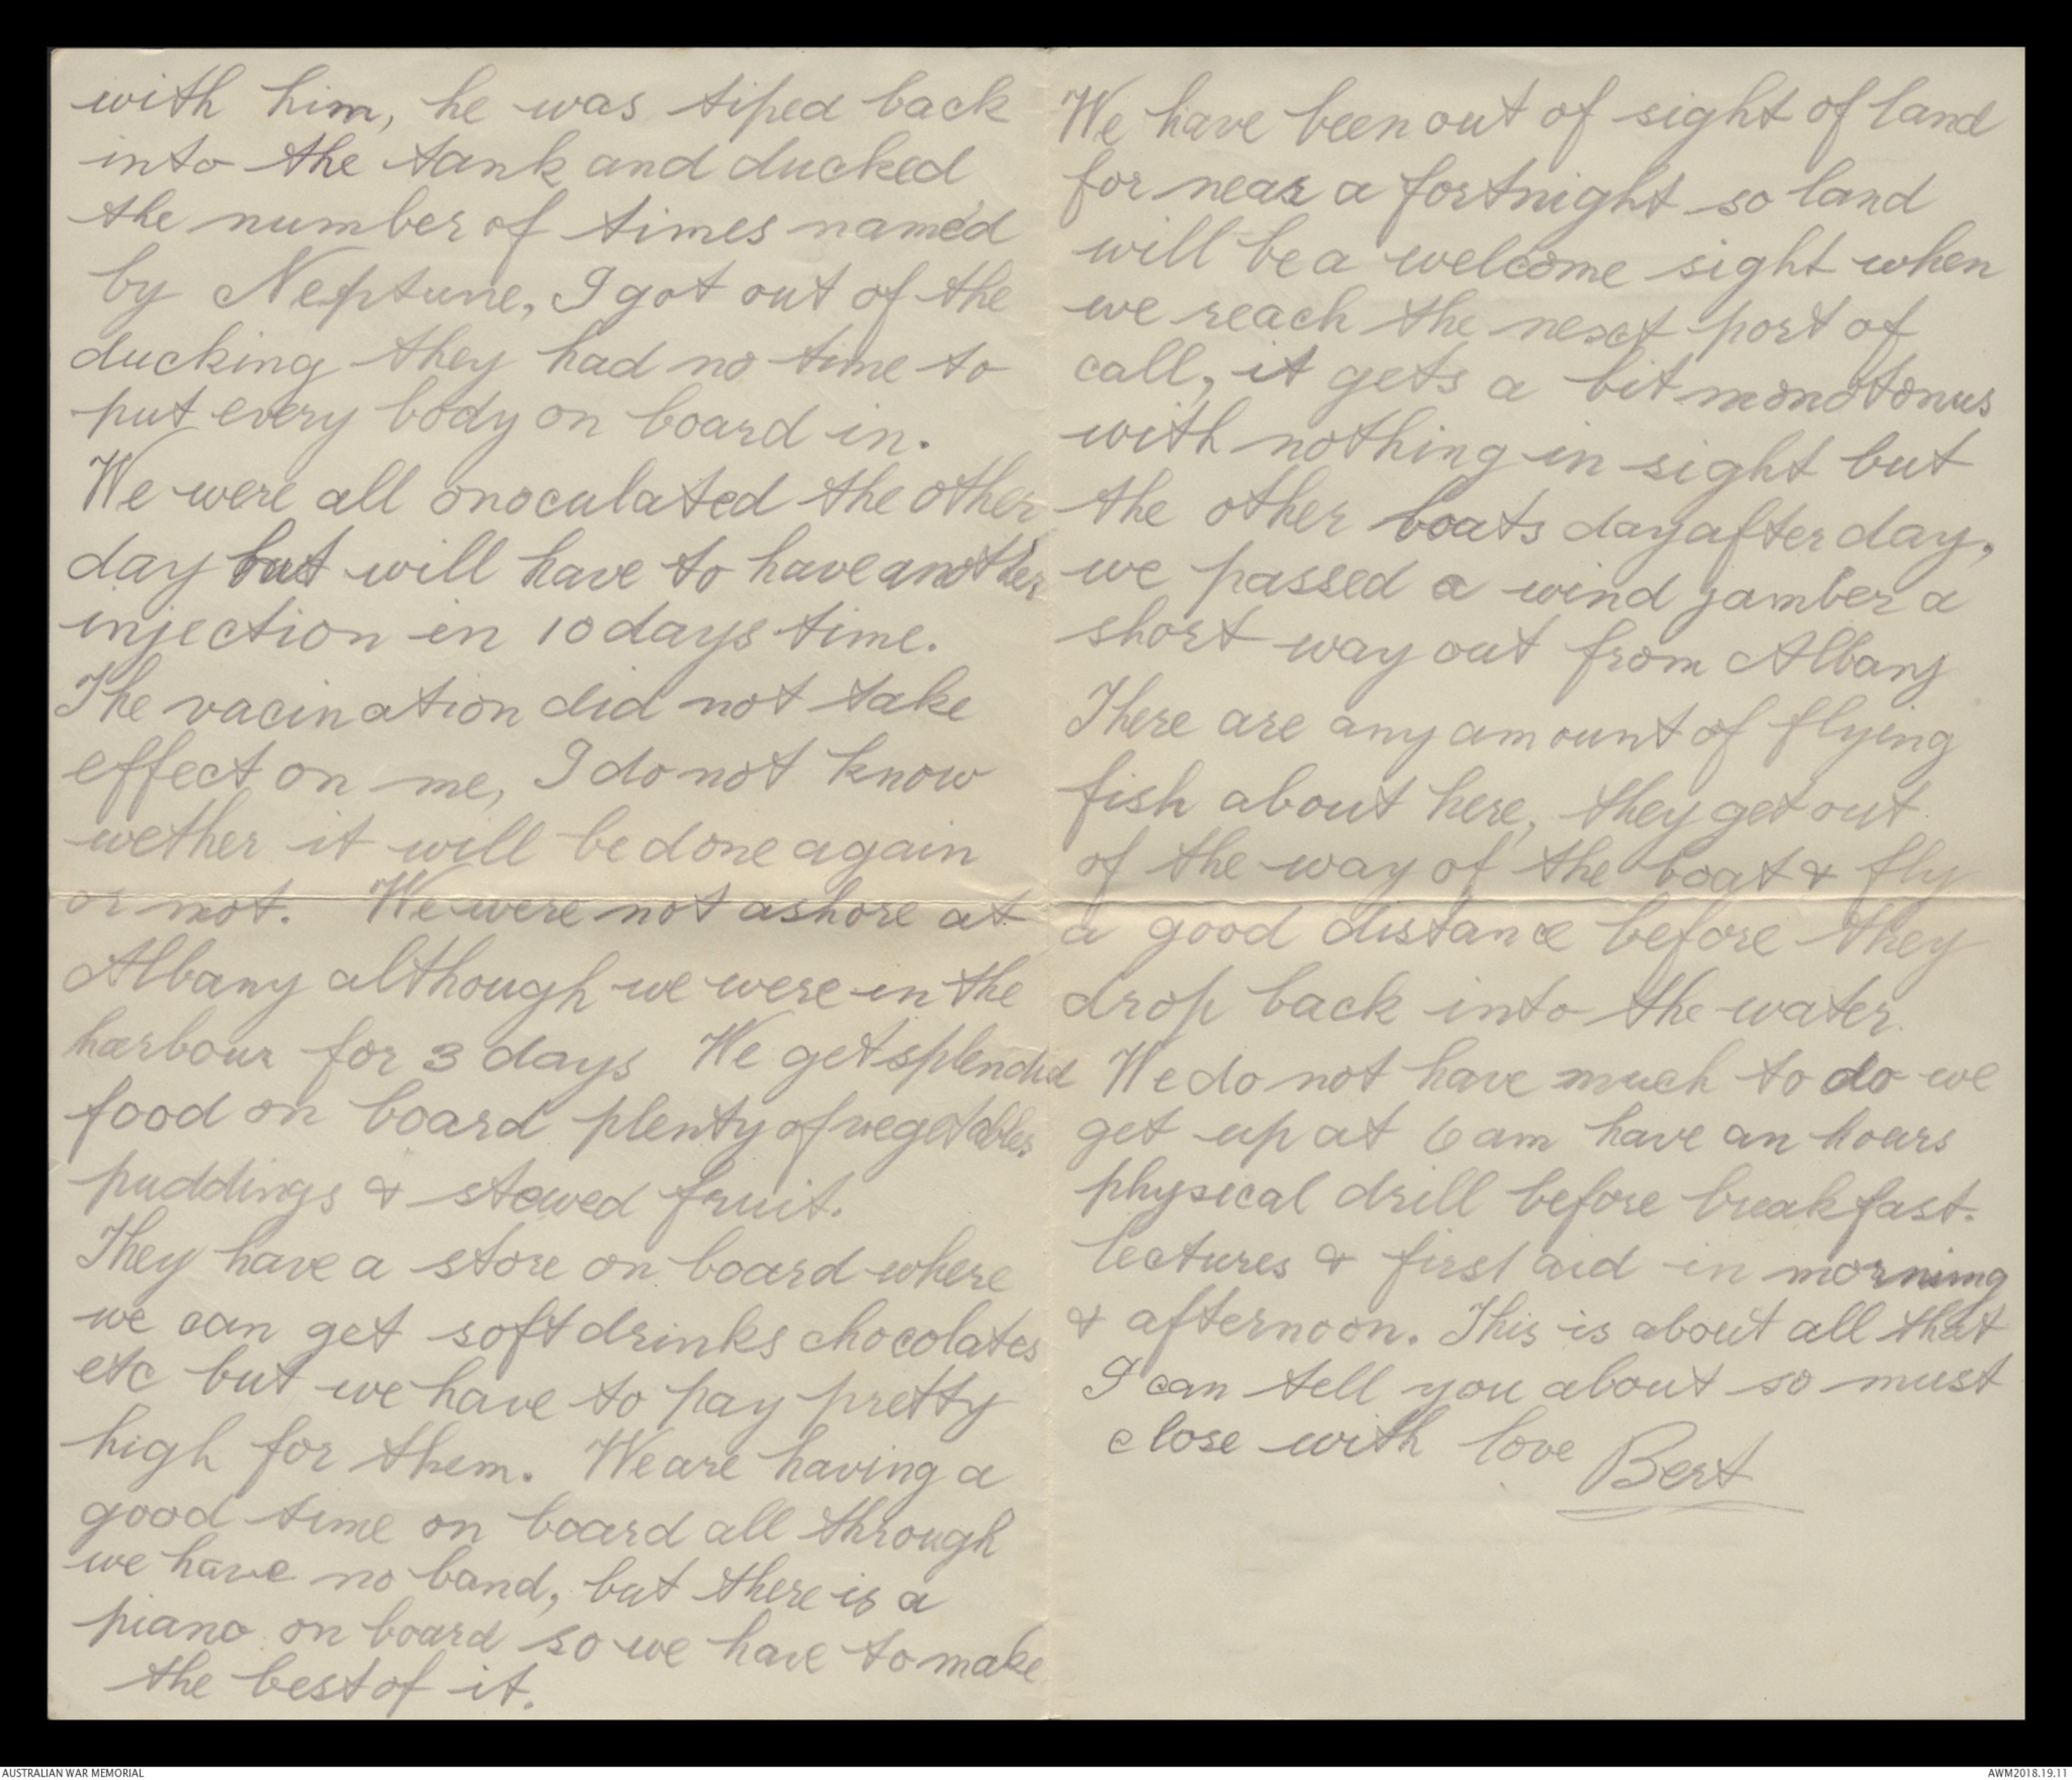 with him, he was tiped back
into the tank and ducked
the number of times named
by Neptune, I got out of the
ducking they had no time to
put every body on board in.
We were all onoculated the other
day but will have to have another
injection in 10 days time.
The vacination did not take
effect on me, I do not know
wether it will be done again
or not. We were not ashore at
Albany although we were in the
harbour for 3 days We get splendid
food on board plenty of vegetables
puddings & stewed fruit.
They have a store on board where
we can get soft drinks chocolates
etc but we have to pay pretty
high for them. We are having a
good time on board all through
we have no band, but there is a
piano on board so we have to make
the best of it.
We have been out of sight of land
for near a fortnight so land
will be a welcome sight when
we reach the next port of
call, it gets a bit monotonus
with nothing in sight but
the other boats day after day,
we passed a wind jamber a
short way out from Albany
There are any amount of flying
fish about here, they get out
of the way of the boat & fly
a good distance before they
drop back into the water.
We do not have much to do we
get up at 6 am have an hours
physical drill before breakfast.
lectures & first aid in morning
& afternoon. This is about all that
I can tell you about so must
close with love Bert
AUSTRALIAN WAR MEMORIAL
AWM2018.19.11